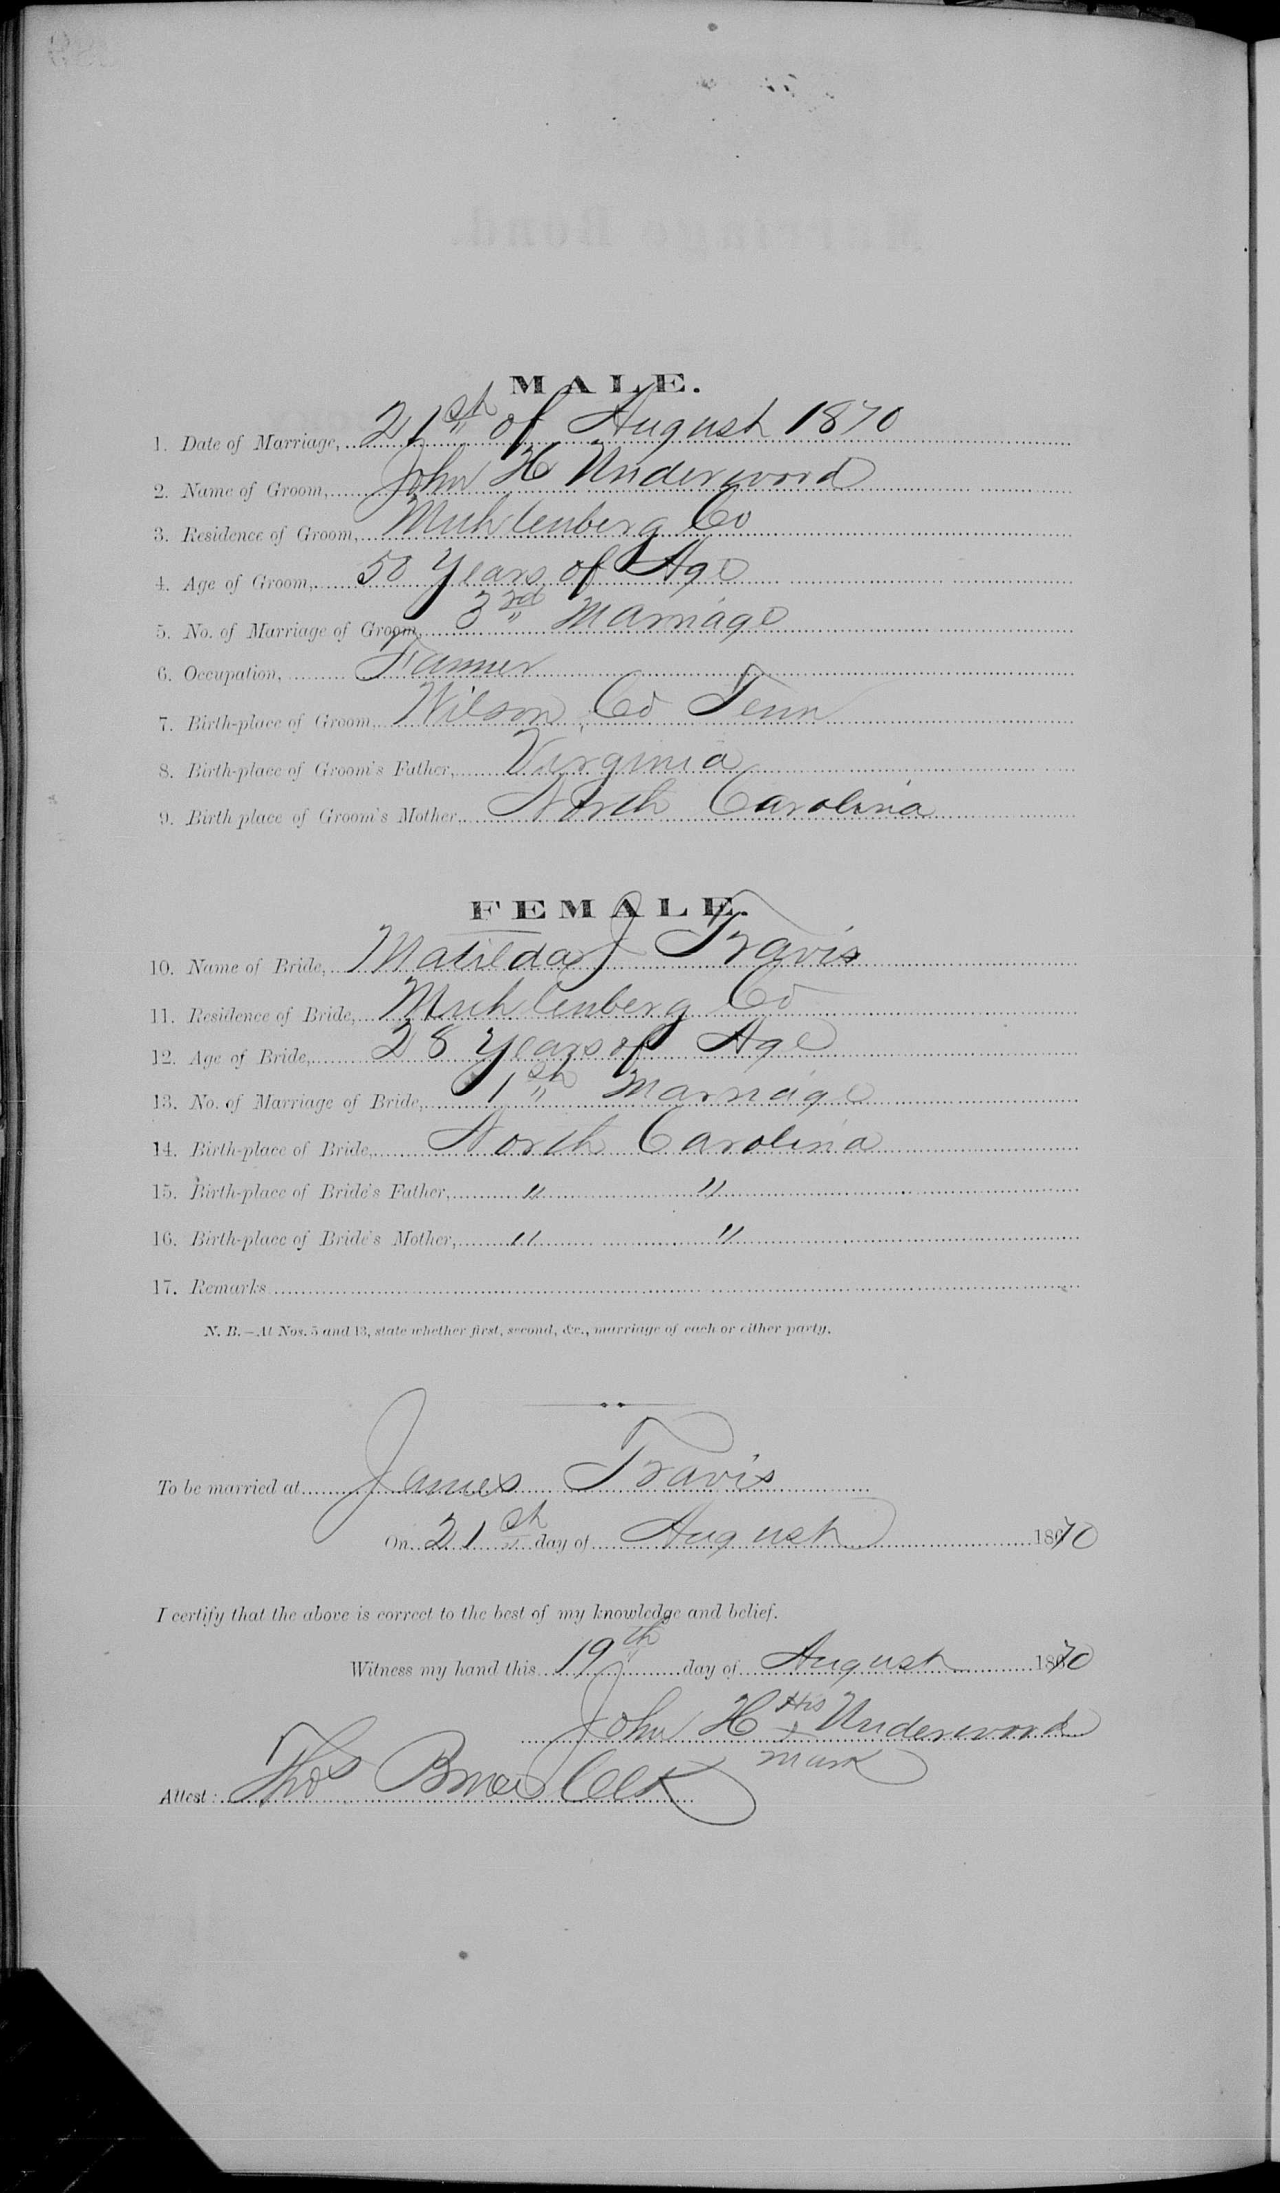 MALE.
1. Date of Marriage, 21st of August 1870
2. Name of Groom, John H Underwood
3. Residence of Groom, Muhlenberg Co
4. Age of Groom, 50 Years of Age
5. No. of Marriage of Groom, 3rd Marriage
6. Occupation, Farmer
7. Birth-place of Groom, Wilson Co Tenn
8. Birth-place of Groom's Father, Virginia
9. Birth place of Groom's Mother, North Carolina
FEMALE.
10. Name of Bride, Matilda J Travis
11. Residence of Bride, Muhlenberg Co
12. Age of Bride, 28 Years of Age
13. No. of Marriage of Bride, 1st Marriage
14. Birth-place of Bride, North Carolina
15. Birth-place of Bride's Father, " "
16. Birth-place of Bride's Mother, " "
17. Remarks
N. B.—At Nos. 5 and 13, state whether first, second, &c., marriage of each or either party.
To be married at James Travis
On 21st day of August 1870
I certify that the above is correct to the best of my knowledge and belief.
Witness my hand this 19th day of August 1870
John H His x Underwood
mark
Attest: Thos Clk